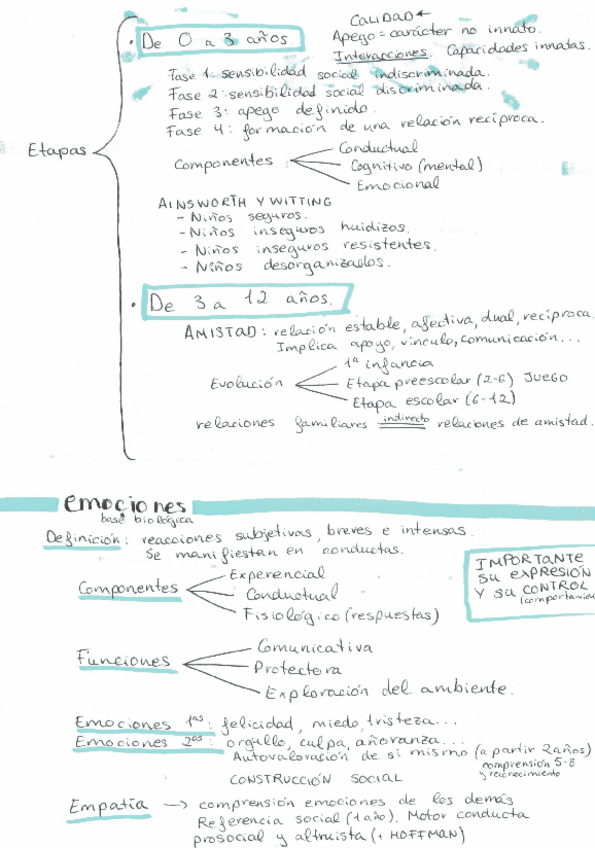 CALIDAD ←
• De 0 a 3 años.
Apego = carácter no innato.
Interacciones. Capacidades innatas.
Fase 1: sensibilidad social indiscriminada.
Fase 2: sensibilidad social discriminada.
Fase 3: apego definido.
Fase 4: formación de una relación recíproca.
Etapas
Componentes
Conductual
Cognitivo (mental)
Emocional
AINSWORTH Y WITTING
- Niños seguros.
- Niños inseguros huidizos.
- Niños inseguros resistentes.
- Niños desorganizados.
• De 3 a 12 años.
AMISTAD: relación estable, afectiva, dual, recíproca.
Implica apoyo, vínculo, comunicación...
Evolución
1ª infancia
Etapa preescolar (2-6) JUEGO
Etapa escolar (6-12)
relaciones familiares indirecto relaciones de amistad.
emociones
base biológica
Definición: reacciones subjetivas, breves e intensas.
Se manifiestan en conductas.
IMPORTANTE
SU EXPRESIÓN
Y SU CONTROL
Componentes
Experencial
Conductual
Fisiológico (respuestas)
Funciones
Comunicativa
Protectora
Exploración del ambiente.
Emociones 1ªˢ: felicidad, miedo, tristeza...
Emociones 2ªˢ: orgullo, culpa, añoranza...
Autovaloración de si mismo (a partir 2años)
comprensión 5-8
y reconocimiento
CONSTRUCCIÓN SOCIAL
Empatía → comprensión emociones de los demás
Referencia social (1 año). Motor conducta
prosocial y altruista (+ HOFFMAN)